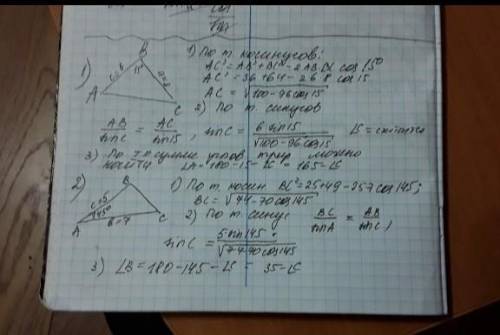 1) По т. косинусов:
1) B
c=6 15° a=8
A C
AC² = AB² + BC² - 2AB·BC cos 15°
AC² = 36 + 64 - 2·6·8 cos 15
AC = √100-96cos15
2) По т. синусов
AB/sinC = AC/sin15, sinC = 6 sin15/√100-96cos15
3) По т. о сумме углов треуг. можно
найти ∠A = 180-15-∠C = 165-∠C
2) B
c=5 145° b=7
A C
1) По т. косин BC² = 25+49-2·5·7 cos145;
BC = √74-70cos145
2) По т. синус BC/sinA = AB/sinC,
sinC = 5sin145/√74-70cos145
3) ∠B = 180-145-∠C = 35-∠C